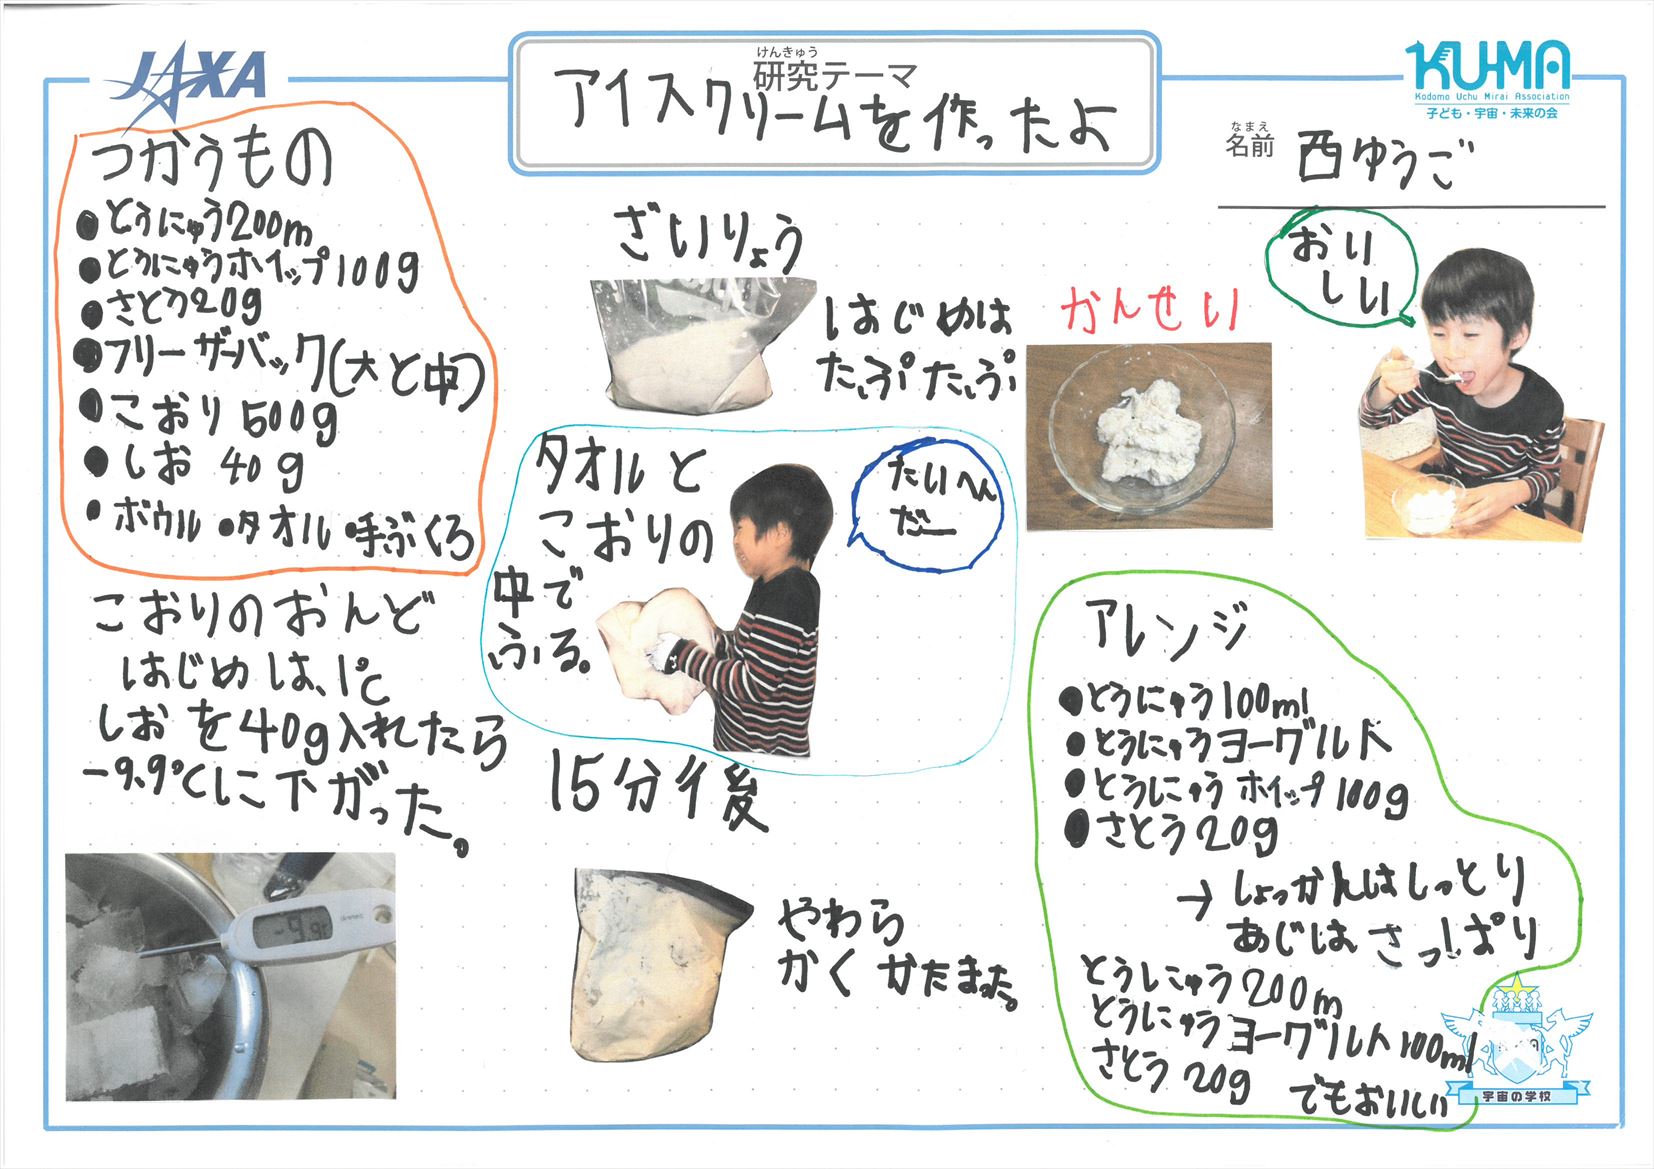 JAXA
けんきゅう
研究テーマ
アイスクリームを作ったよ
KU-MA
Kodomo Uchu Mirai Association
子ども・宇宙・未来の会
なまえ
名前
西ゆうご
つかうもの
●とうにゅう200m
●とうにゅうホイップ100g
●さとう20g
●フリーザーバック(大と中)
●こおり500g
●しお 40g
●ボウル ●タオル ●手ぶくろ
こおりのおんど
はじめは、1℃
しおを40g入れたら
-9.9℃に下がった。
ざいりょう
はじめは
たぷたぷ
タオルと
こおりの
中で
ふる。
たいへん
だー
15分後
やわら
かくかたまった。
かんせい
おい
しい
アレンジ
●とうにゅう100ml
●とうにゅうヨーグルト
●とうにゅうホイップ100g
●さとう20g
→しょっかんはしっとり
あじはさっぱり
とうにゅう200m
とうにゅうヨーグルト100ml
さとう20g
でもおいしい
宇宙の学校